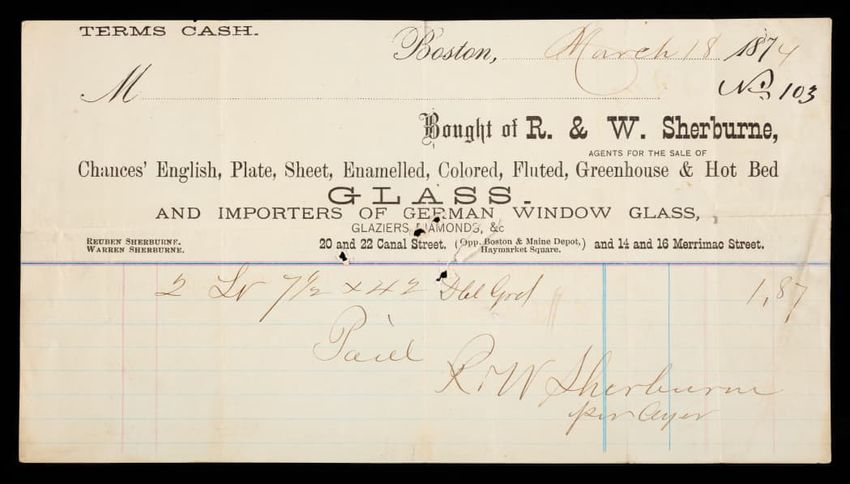 TERMS CASH.
Boston, March 18 1874
M
No. 103
Bought of R. & W. Sherburne,
AGENTS FOR THE SALE OF
Chances' English, Plate, Sheet, Enamelled, Colored, Fluted, Greenhouse & Hot Bed
GLASS.
AND IMPORTERS OF GERMAN WINDOW GLASS,
GLAZIERS DIAMONDS, &c
REUBEN SHERBURNE.
WARREN SHERBURNE.
20 and 22 Canal Street. (Opp. Boston & Maine Depot, Haymarket Square.) and 14 and 16 Merrimac Street.
2 7 1/2 x 42 Dbl Grd " 1,87
Paid
R. W Sherburne
per Ayer